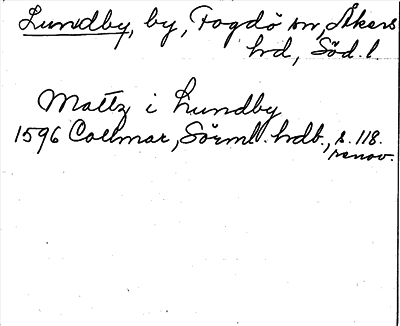 Lundby, by, Fogdö sn, Åkers
hd, Söd. l
Mattz i Lundby
1596 Collmar, Sörml. hdb., s. 118.
renov.